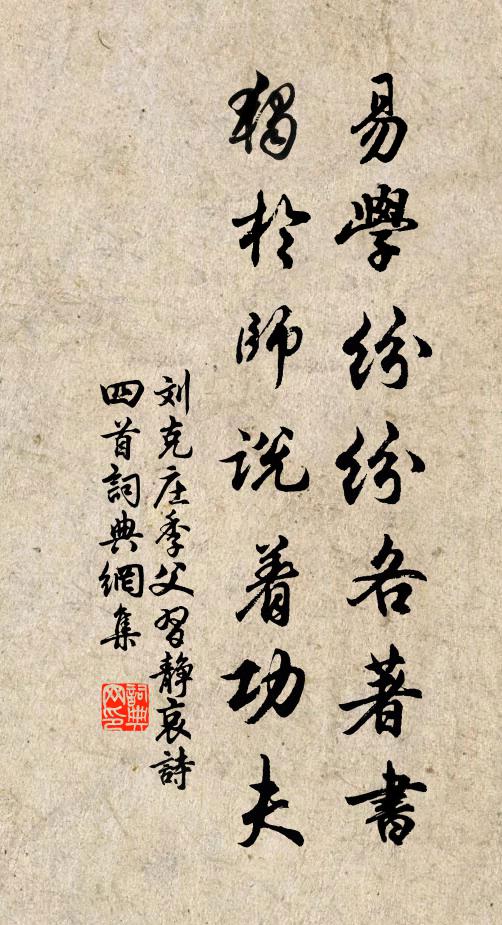 易學紛紛各著書
獨於師説着功夫
刘克庄季父習靜哀詩
四首詞典網集
詞典
网印